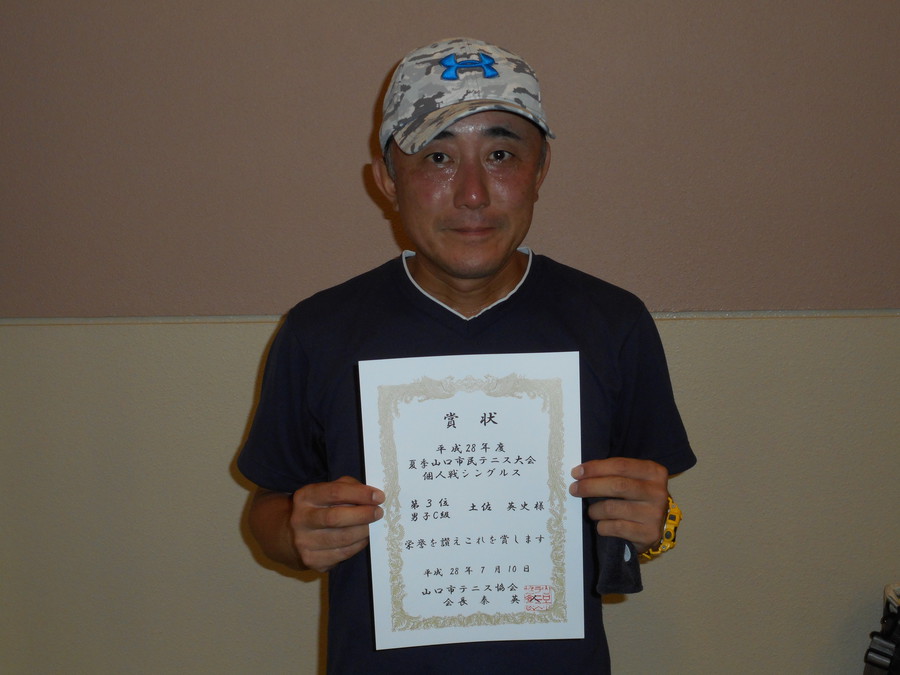 賞状
平成28年度
夏季山口市民テニス大会
個人戦シングルス
第3位
男子C級
土佐 英史様
栄誉を讃えこれを賞します
平成28年7月10日
山口市テニス協会
会長 秦 英